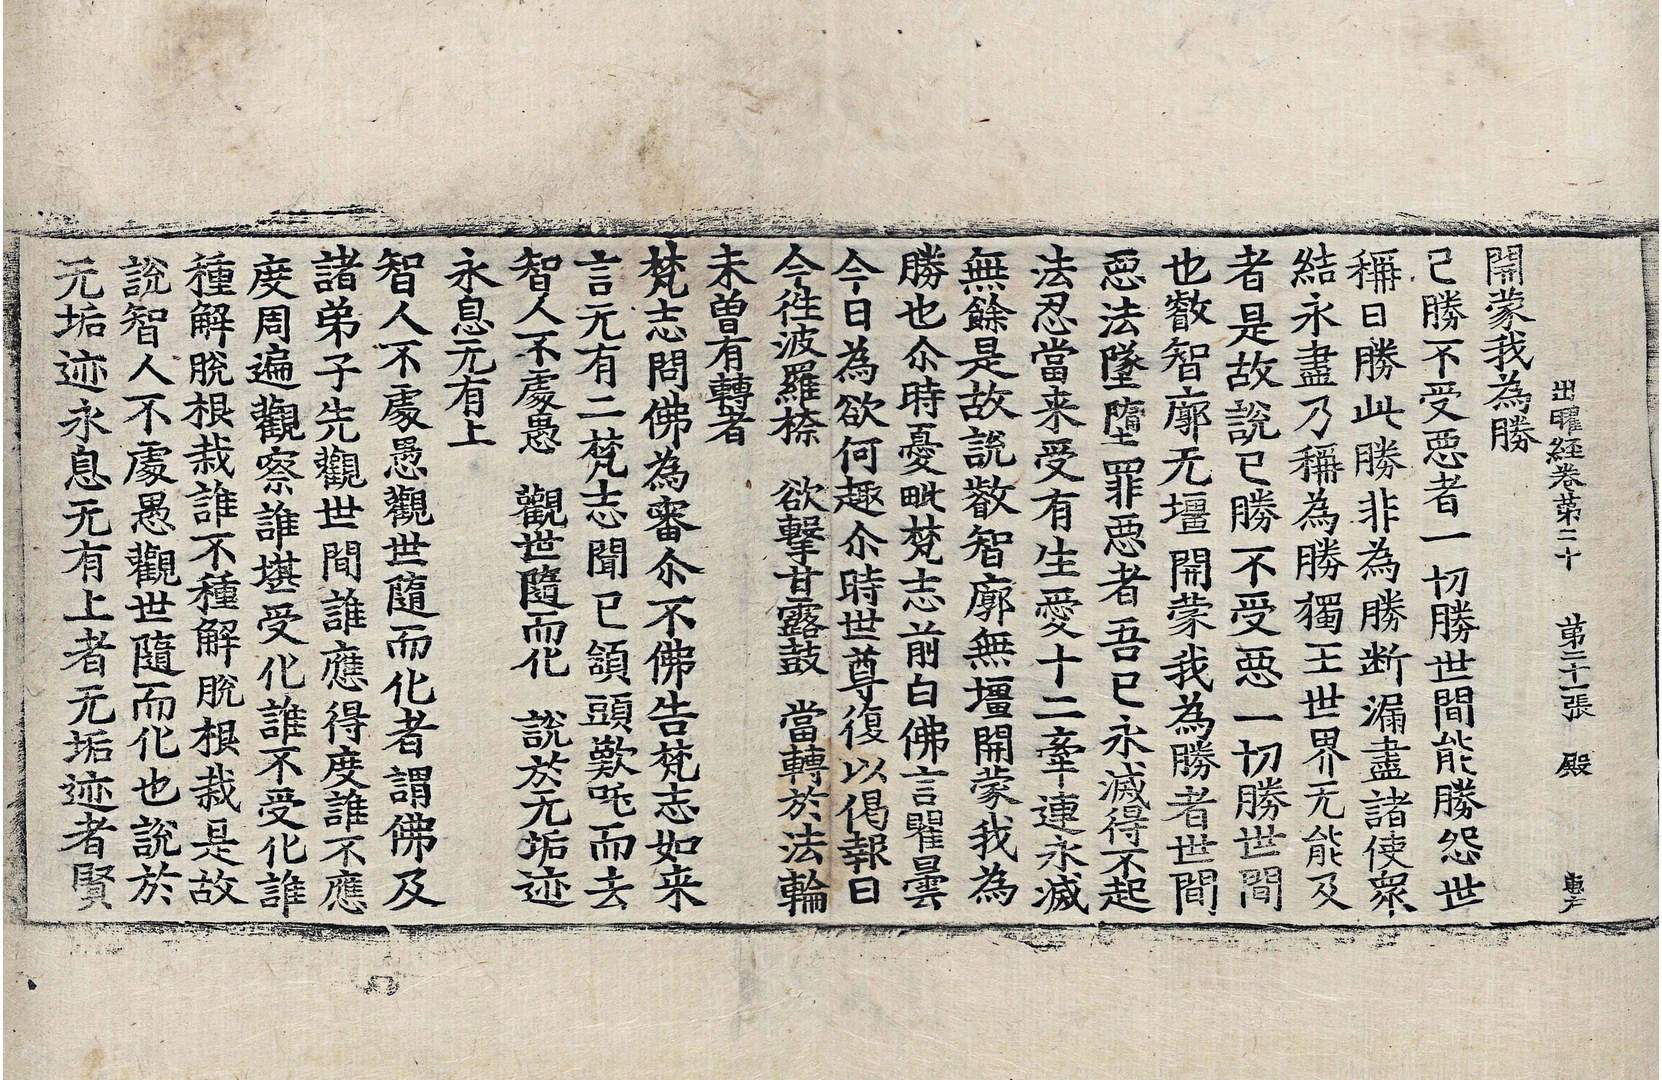 出曜経卷第二十 第二十一張 殿
開蒙我為勝
已勝不受惡者一切勝世間能勝怨世
稱曰勝此勝非為勝断漏盡諸使衆
結永盡乃稱為勝獨王世界无能及
者是故說已勝不受惡一切勝世間
也叡智廓无壃開蒙我為勝者世間
惡法墜墮罪惡者吾已永滅得不起
法忍當来受有生愛十二牽連永滅
無餘是故說叡智廓無壃開蒙我為
勝也尒時憂毗梵志前白佛言瞿曇
今日為欲何趣尒時世尊復以偈報曰
今徃波羅㮈 欲擊甘露鼓 當轉於法輪
未曾有轉者
梵志問佛為審尒不佛告梵志如来
言无有二梵志聞已頷頭歎吒而去
智人不處愚 觀世隨而化 說於无垢迹
永息无有上
智人不處愚觀世隨而化者謂佛及
諸弟子先觀世間誰應得度誰不應
度周遍觀察誰堪受化誰不受化誰
種解脫根栽誰不種解脫根栽是故
說智人不處愚觀世隨而化也說於
无垢迹永息无有上者无垢迹者賢